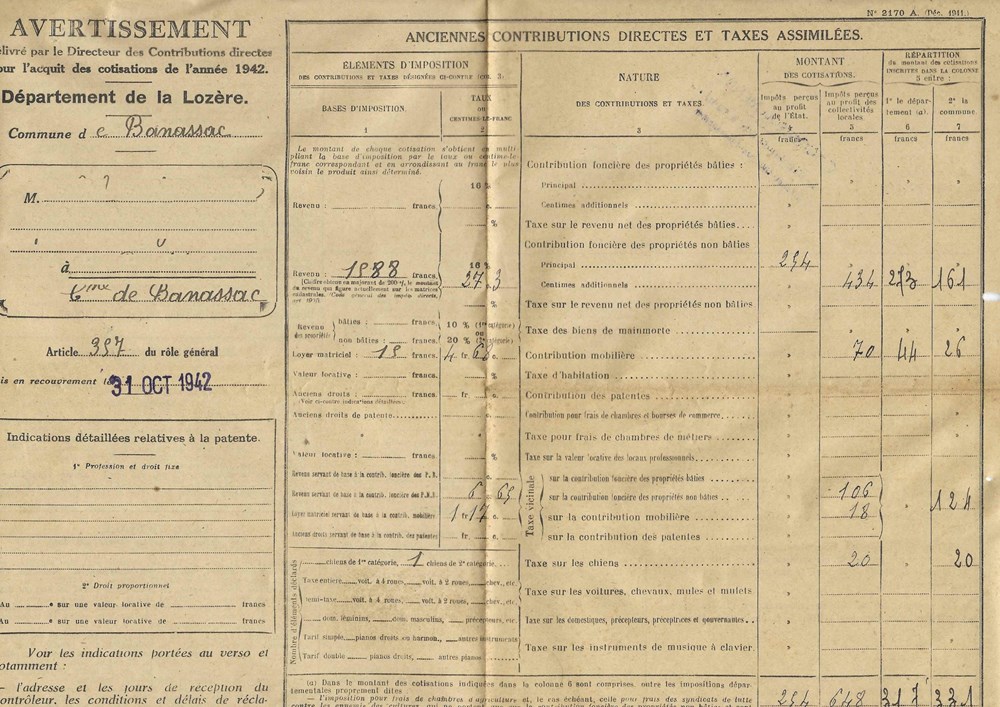 N° 2170 A. (Déc. 1941.)
AVERTISSEMENT
élivré par le Directeur des Contributions directes
our l'acquit des cotisations de l'année 1942.
Département de la Lozère.
Commune de Banassac
M.
à
Cne de Banassac
Article 397 du rôle général
is en recouvrement le 31 OCT 1942
Indications détaillées relatives à la patente.
1° Profession et droit fixe
2° Droit proportionnel
Au e sur une valeur locative de francs
Au e sur une valeur locative de francs
Voir les indications portées au verso et
otamment :
— l'adresse et les jours de réception du
ontrôleur, les conditions et délais de récla-
ANCIENNES CONTRIBUTIONS DIRECTES ET TAXES ASSIMILÉES.
ÉLÉMENTS D'IMPOSITION
DES CONTRIBUTIONS ET TAXES DÉSIGNÉES CI-CONTRE (COL. 3)
BASES D'IMPOSITION.
1
TAUX
ou
CENTIMES-LE-FRANC
2
NATURE
DES CONTRIBUTIONS ET TAXES.
3
MONTANT
DES COTISATIONS.
Impôts perçus
au profit
de l'État.
4
Impôts perçus
au profit des
collectivités
locales
5
RÉPARTITION
du montant des cotisations
INSCRITES DANS LA COLONNE
5 entre :
1° le dépar-
tement (a).
6
2° la
commune.
7
francs francs francs francs
Le montant de chaque cotisation s'obtient en multi-
pliant la base d'imposition par le taux ou centime-le-
franc correspondant et en arrondissant au franc le plus
voisin le produit ainsi déterminé.
Contribution foncière des propriétés bâties :
16 %
Principal
Revenu : francs
Centimes additionnels
% Taxe sur le revenu net des propriétés bâties
Contribution foncière des propriétés non bâties
Revenu : 1588 francs 16 % Principal 254
27 3 Centimes additionnels 434 273 161
Taxe sur le revenu net des propriétés non bâties
Revenu des propriétés bâties : francs 10 % (1re catégorie)
ou
non bâties : francs 20 % (2e catégorie)
Taxe des biens de mainmorte
Loyer matriciel : 15 francs 4 fr 68 c. Contribution mobilière 70 44 26
Valeur locative : francs % Taxe d'habitation
Anciens droits : francs fr c. Contribution des patentes
(Voir ci-contre indications détaillées)
Anciens droits de patente c. Contribution pour frais de chambres et bourses de commerce
Taxe pour frais de chambres de métiers
Valeur locative : francs % Taxe sur la valeur locative des locaux professionnels
Taxe vicinale
Revenu servant de base à la contrib. foncière des P.B. sur la contribution foncière des propriétés bâties
Revenu servant de base à la contrib. foncière des P.N.B. 6 65 sur la contribution foncière des propriétés non bâties 106 124
Loyer matriciel servant de base à la contrib. mobilière 1 fr 17 c. sur la contribution mobilière 18
Anciens droits servant de base à la contrib. des patentes fr c. sur la contribution des patentes
Nombre d'éléments déclarés
chiens de 1re catégorie, 1 chiens de 2e catégorie Taxe sur les chiens 20 20
Taxe entière voit. à 4 roues, voit. à 2 roues, chev., etc.
Demi-taxe voit. à 4 roues, voit. à 2 roues, chev., etc.
Taxe sur les voitures, chevaux, mules et mulets
dom. féminins, dom. masculins, précepteurs, etc. Taxe sur les domestiques, précepteurs, préceptrices et gouvernantes
Tarif simple pianos droits ou harmon., autres instruments
Tarif double pianos droits, autres pianos
Taxe sur les instruments de musique à clavier.
(a) Dans le montant des cotisations indiquées dans la colonne 6 sont comprises, outre les impositions dépar-
tementales proprement dites
— l'imposition pour frais de chambres d'agriculture et, le cas échéant, celle pour frais des syndicats de lutte
254 648 317 331